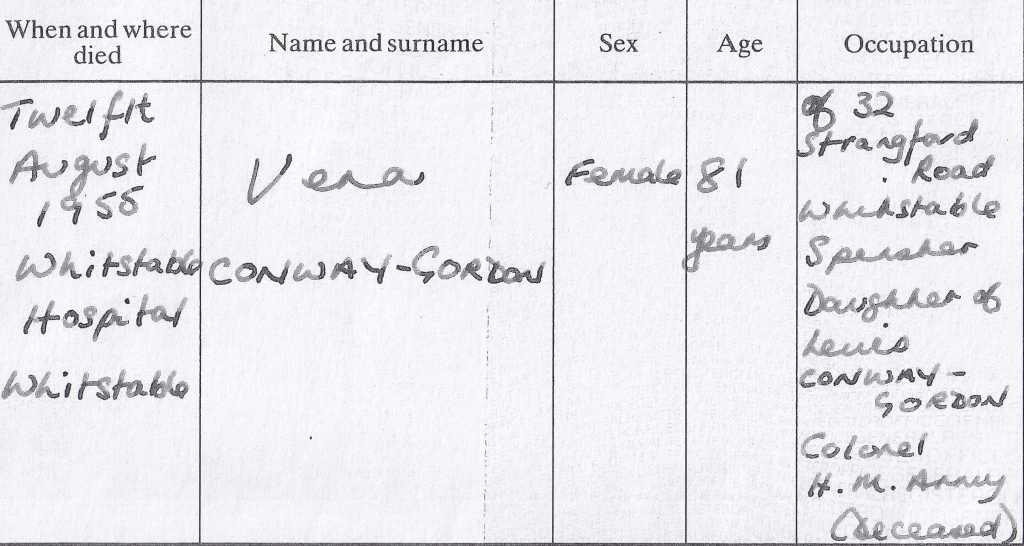 When and where
died
Name and surname
Sex
Age
Occupation
Twelfth
August
1955
Whitstable
Hospital
Whitstable
Vera
CONWAY-GORDON
Female
81
years
of 32
Strangford
Road
Whitstable
Spinster
Daughter of
Lewis
CONWAY-
GORDON
Colonel
H.M. Army
(deceased)